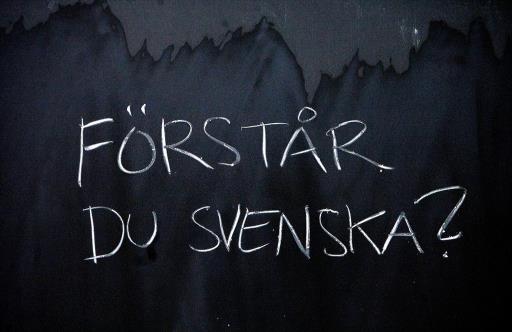 FÖRSTÅR
DU SVENSKA?